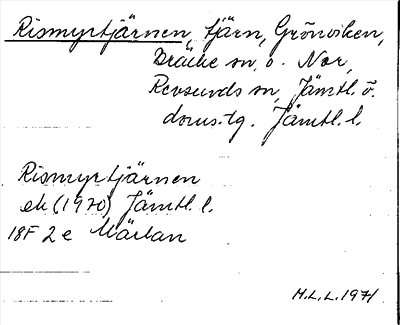 Rismyrtjärnen, tjärn, Grönviken,
Bräcke sn, o. Nor,
Revsunds sn, Jämtl. ö.
doms.tg. Jämtl. l.
Rismyrtjärnen
ek (1970) Jämtl. l.
18F 2 e Märlan
H.L.L. 1971